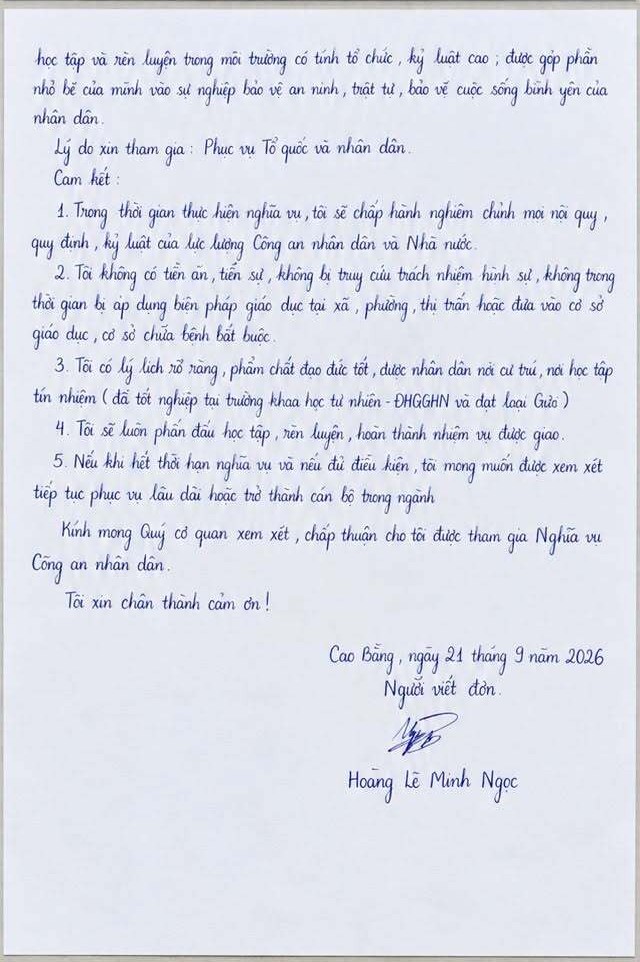 học tập và rèn luyện trong môi trường có tính tổ chức, kỷ luật cao; được góp phần
nhỏ bé của mình vào sự nghiệp bảo vệ an ninh, trật tự, bảo vệ cuộc sống bình yên của
nhân dân.
Lý do xin tham gia: Phục vụ Tổ quốc và nhân dân.
Cam kết:
1. Trong thời gian thực hiện nghĩa vụ, tôi sẽ chấp hành nghiêm chỉnh mọi nội quy,
quy định, kỷ luật của lực lượng Công an nhân dân và Nhà nước.
2. Tôi không có tiền án, tiền sự, không bị truy cứu trách nhiệm hình sự, không trong
thời gian bị áp dụng biện pháp giáo dục tại xã, phường, thị trấn hoặc đưa vào cơ sở
giáo dục, cơ sở chữa bệnh bắt buộc.
3. Tôi có lý lịch rõ ràng, phẩm chất đạo đức tốt, được nhân dân nơi cư trú, nơi học tập
tín nhiệm (đã tốt nghiệp tại trường khaa học tự nhiên - ĐHGGHN và đạt loại Giỏi)
4. Tôi sẽ luôn phấn đấu học tập, rèn luyện, hoàn thành nhiệm vụ được giao.
5. Nếu khi hết thời hạn nghĩa vụ và nếu đủ điều kiện, tôi mong muốn được xem xét
tiếp tục phục vụ lâu dài hoặc trở thành cán bộ trong ngành
Kính mong Quý cơ quan xem xét, chấp thuận cho tôi được tham gia Nghĩa vụ
Công an nhân dân.
Tôi xin chân thành cảm ơn!
Cao Bằng, ngày 21 tháng 9 năm 2026
Người viết đơn.
Hoàng Lê Minh Ngọc